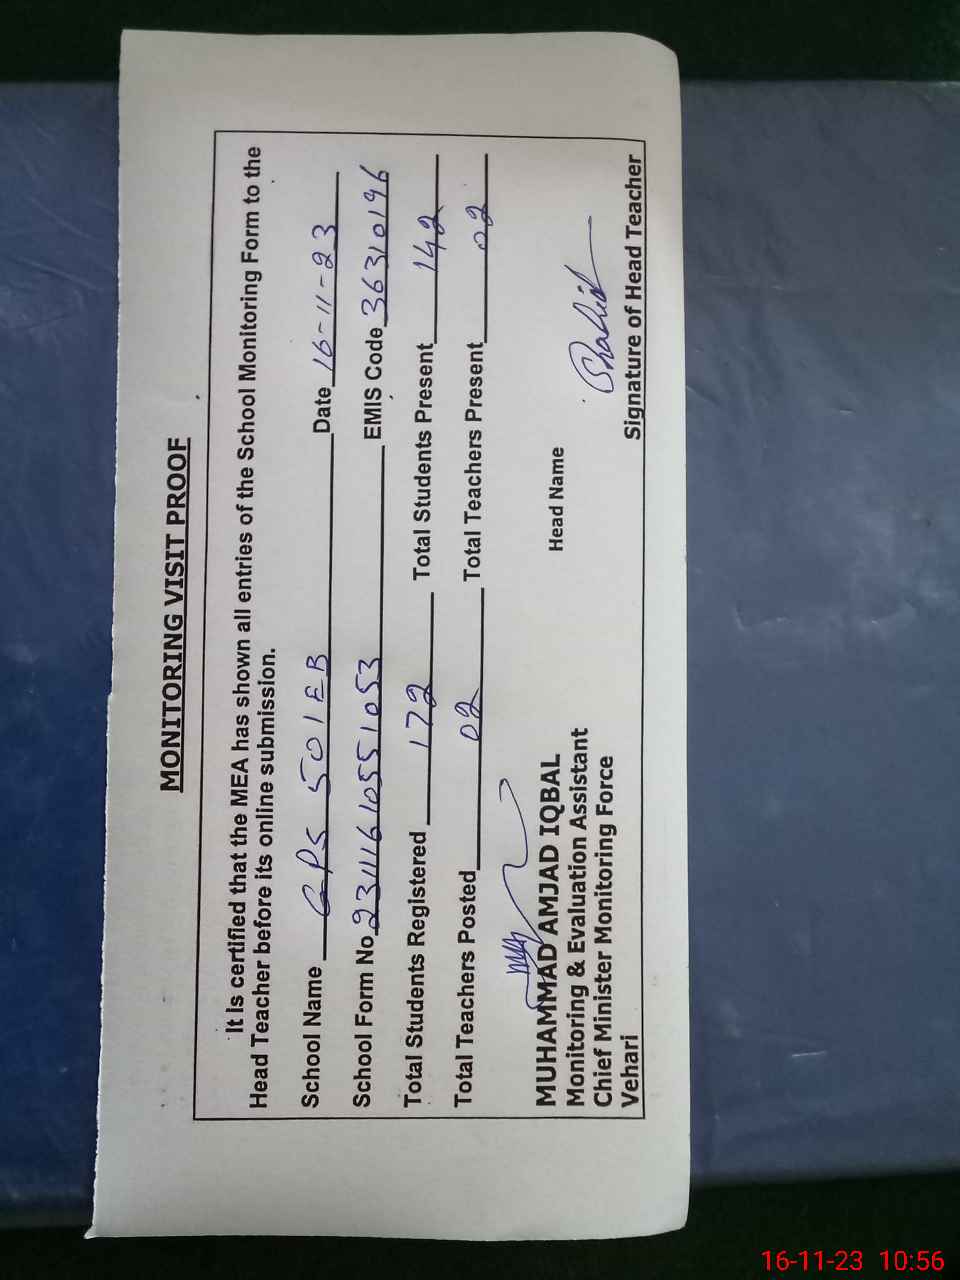 MONITORING VISIT PROOF
It Is certified that the MEA has shown all entries of the School Monitoring Form to the
Head Teacher before its online submission.
School Name GPS 501EB Date 16-11-23
School Form No 231116105551053 EMIS Code 36310196
Total Students Registered 172 Total Students Present 142
Total Teachers Posted 02 Total Teachers Present 02
MUHAMMAD AMJAD IQBAL Head Name
Monitoring & Evaluation Assistant
Chief Minister Monitoring Force
Vehari Signature of Head Teacher
16-11-23 10:56